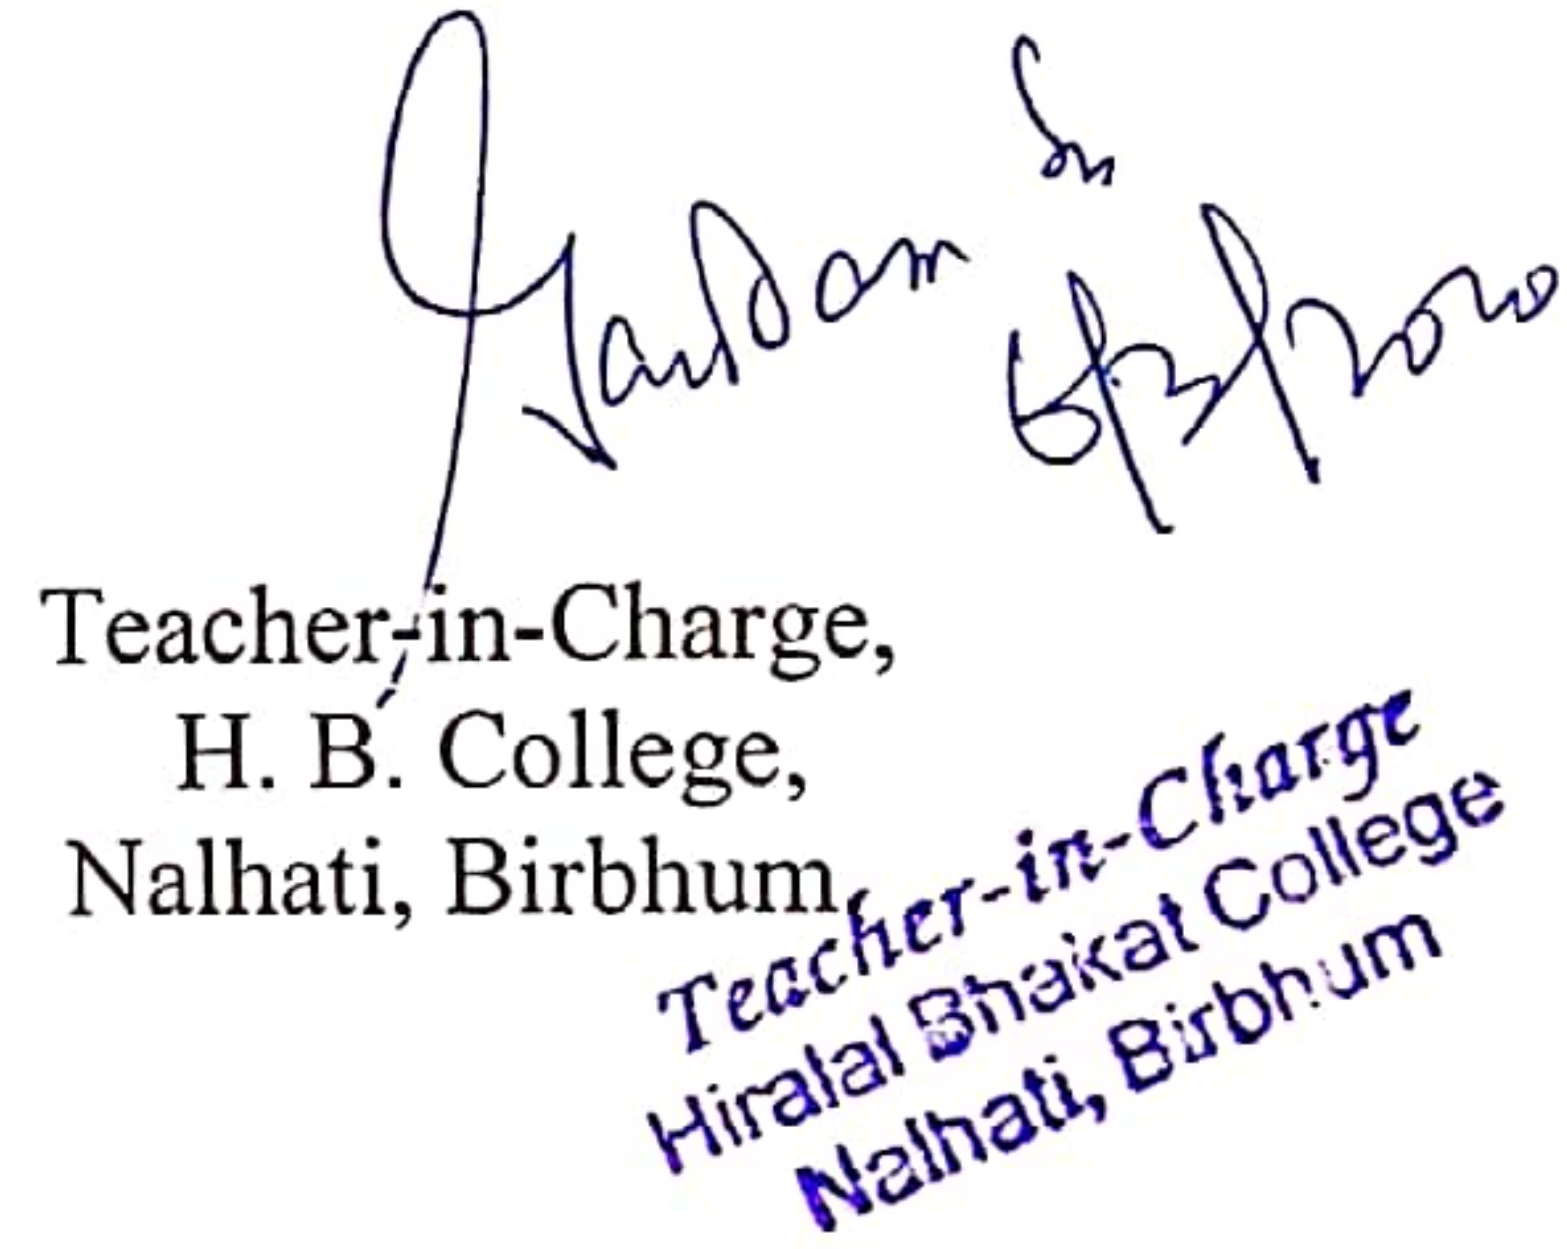 Teacher-in-Charge,
H. B. College,
Nalhati, Birbhum
Teacher-in-Charge
Hiralal Bhakat College
Nalhati, Birbhum